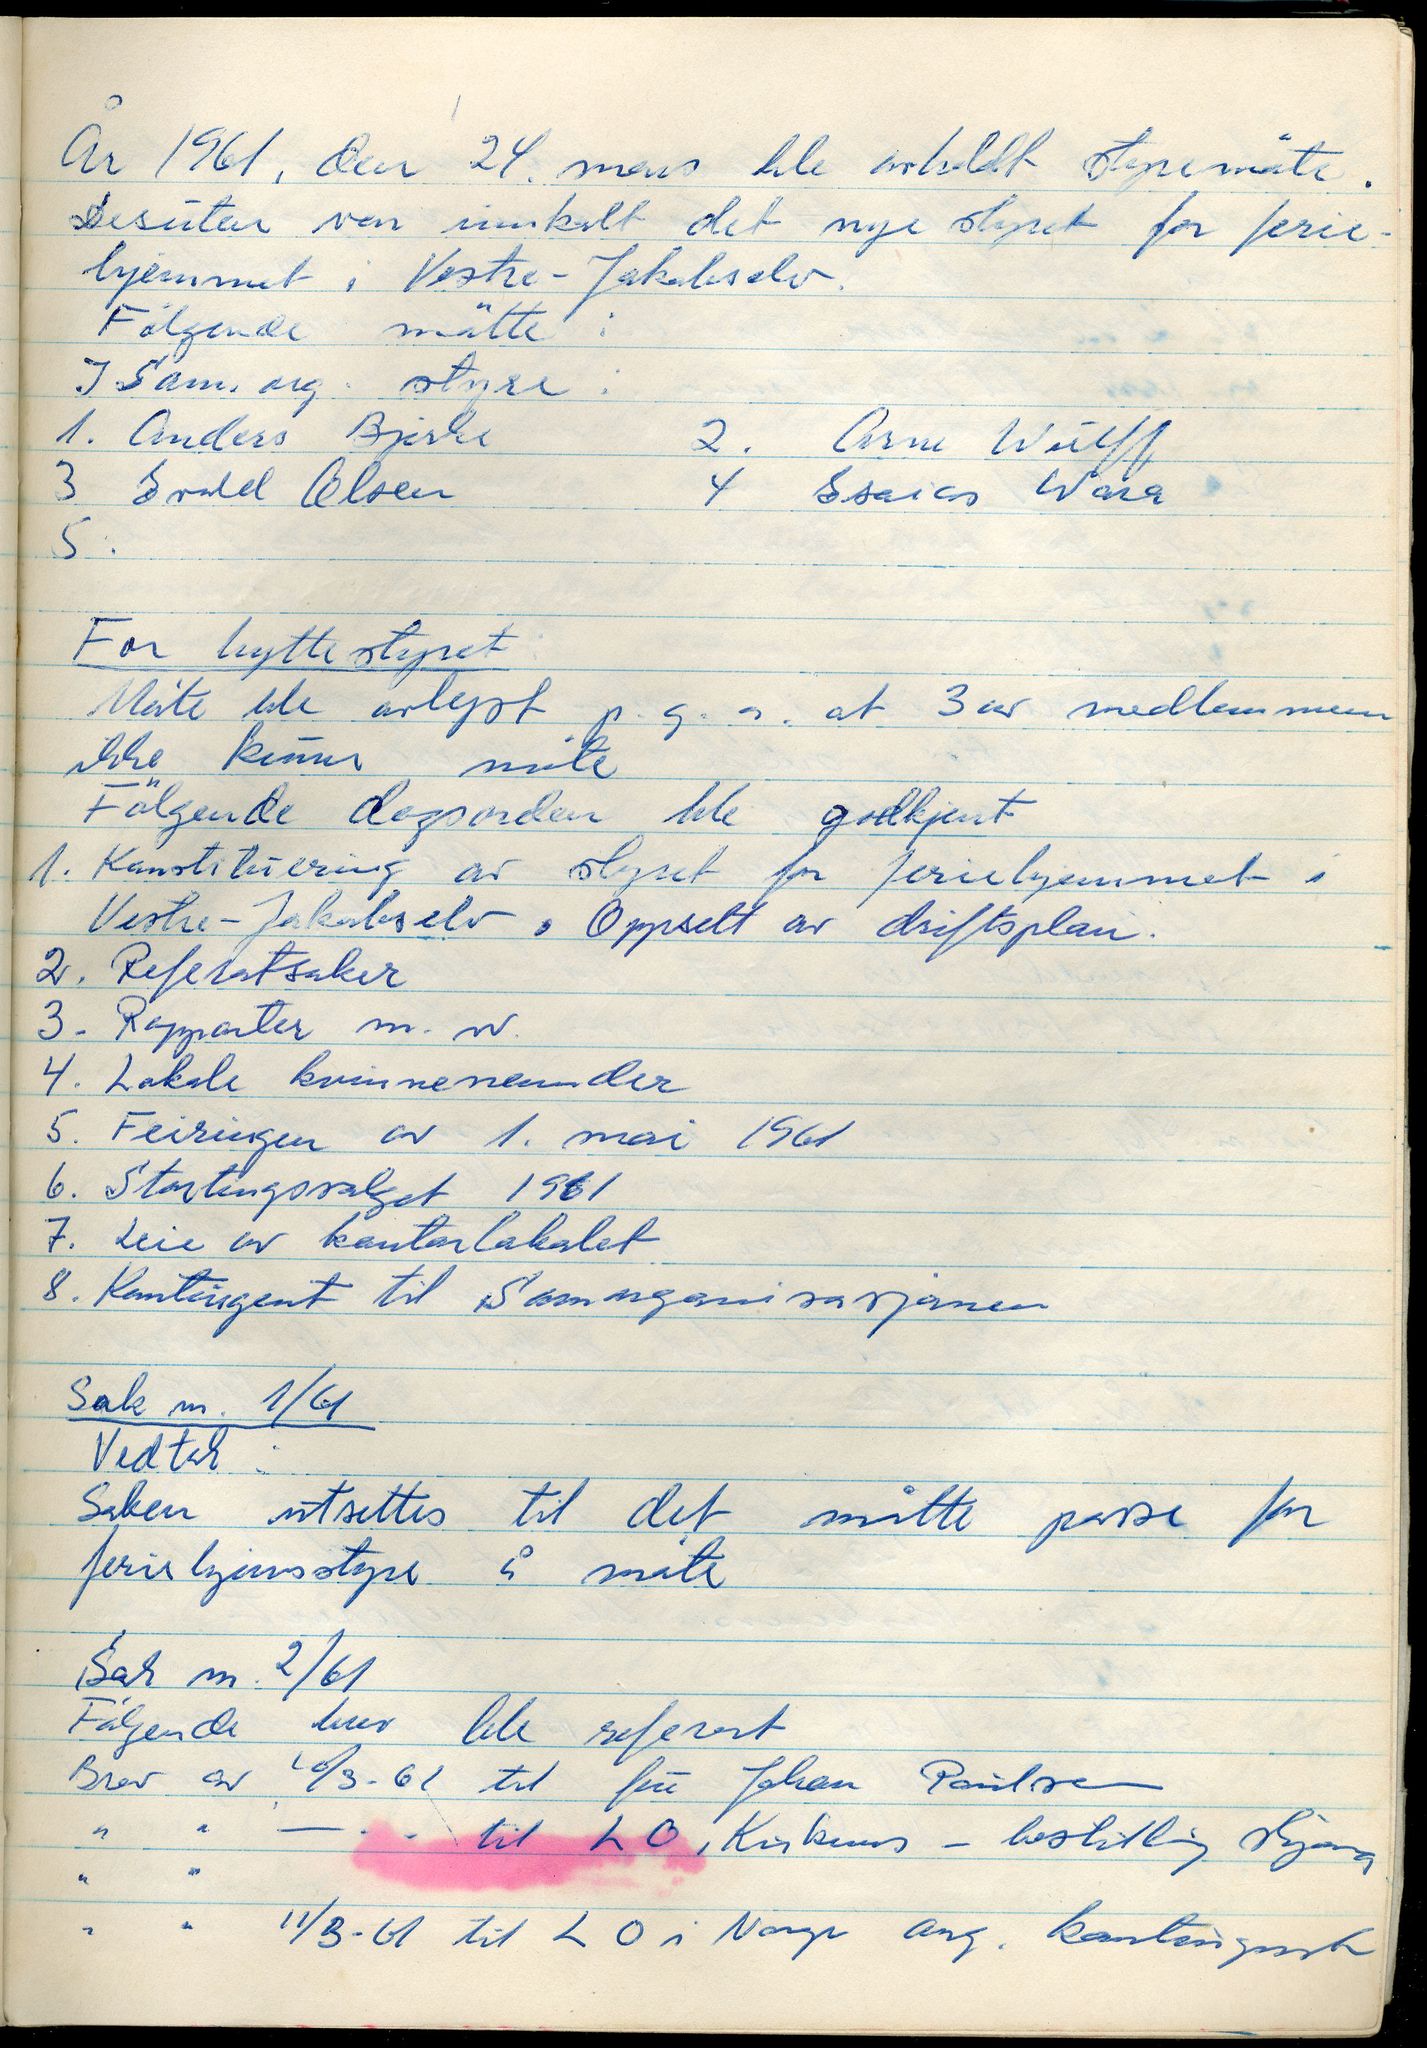 År 1961, den 24. mars ble avholdt styremöte.
Desuten var innkalt det nye styret for ferie-
hjemmet i Vestre-Jakobselv.
Fölgende mötte:
I Sam. org. styre:
1. Anders Bjerke 2. Arne Wülff
3 Evald Olsen 4 Esaias Wara
5.
For hyttestyret:
Möte ble avlyst p.g.a. at 3 av medlemmene
ikke kunne möte
Fölgende dagsorden ble godkjent
1. Konstituering av styret for feriehjemmet i
Vestre-Jakobselv. Oppsett av driftsplan.
2. Referatsaker
3. Rapporter m.v.
4. Lokale kvinnenemnder
5. Feiringen av 1. mai 1961
6. Stortingsvalget 1961
7. Leie av kontorlokalet
8. Kontingent til Samorganisasjonen
Sak nr. 1/61
Vedtak:
Saken utsettes til det måtte passe for
feriehjemsstyre å möte
Sak nr. 2/61
Fölgende brev ble referert
Brev av 10/3-61 til fru Johan Paulsen
" " — " — til LO, Kirkenes - bestilling
" "
" " 11/3-61 til LO i Norge ang. kontingent